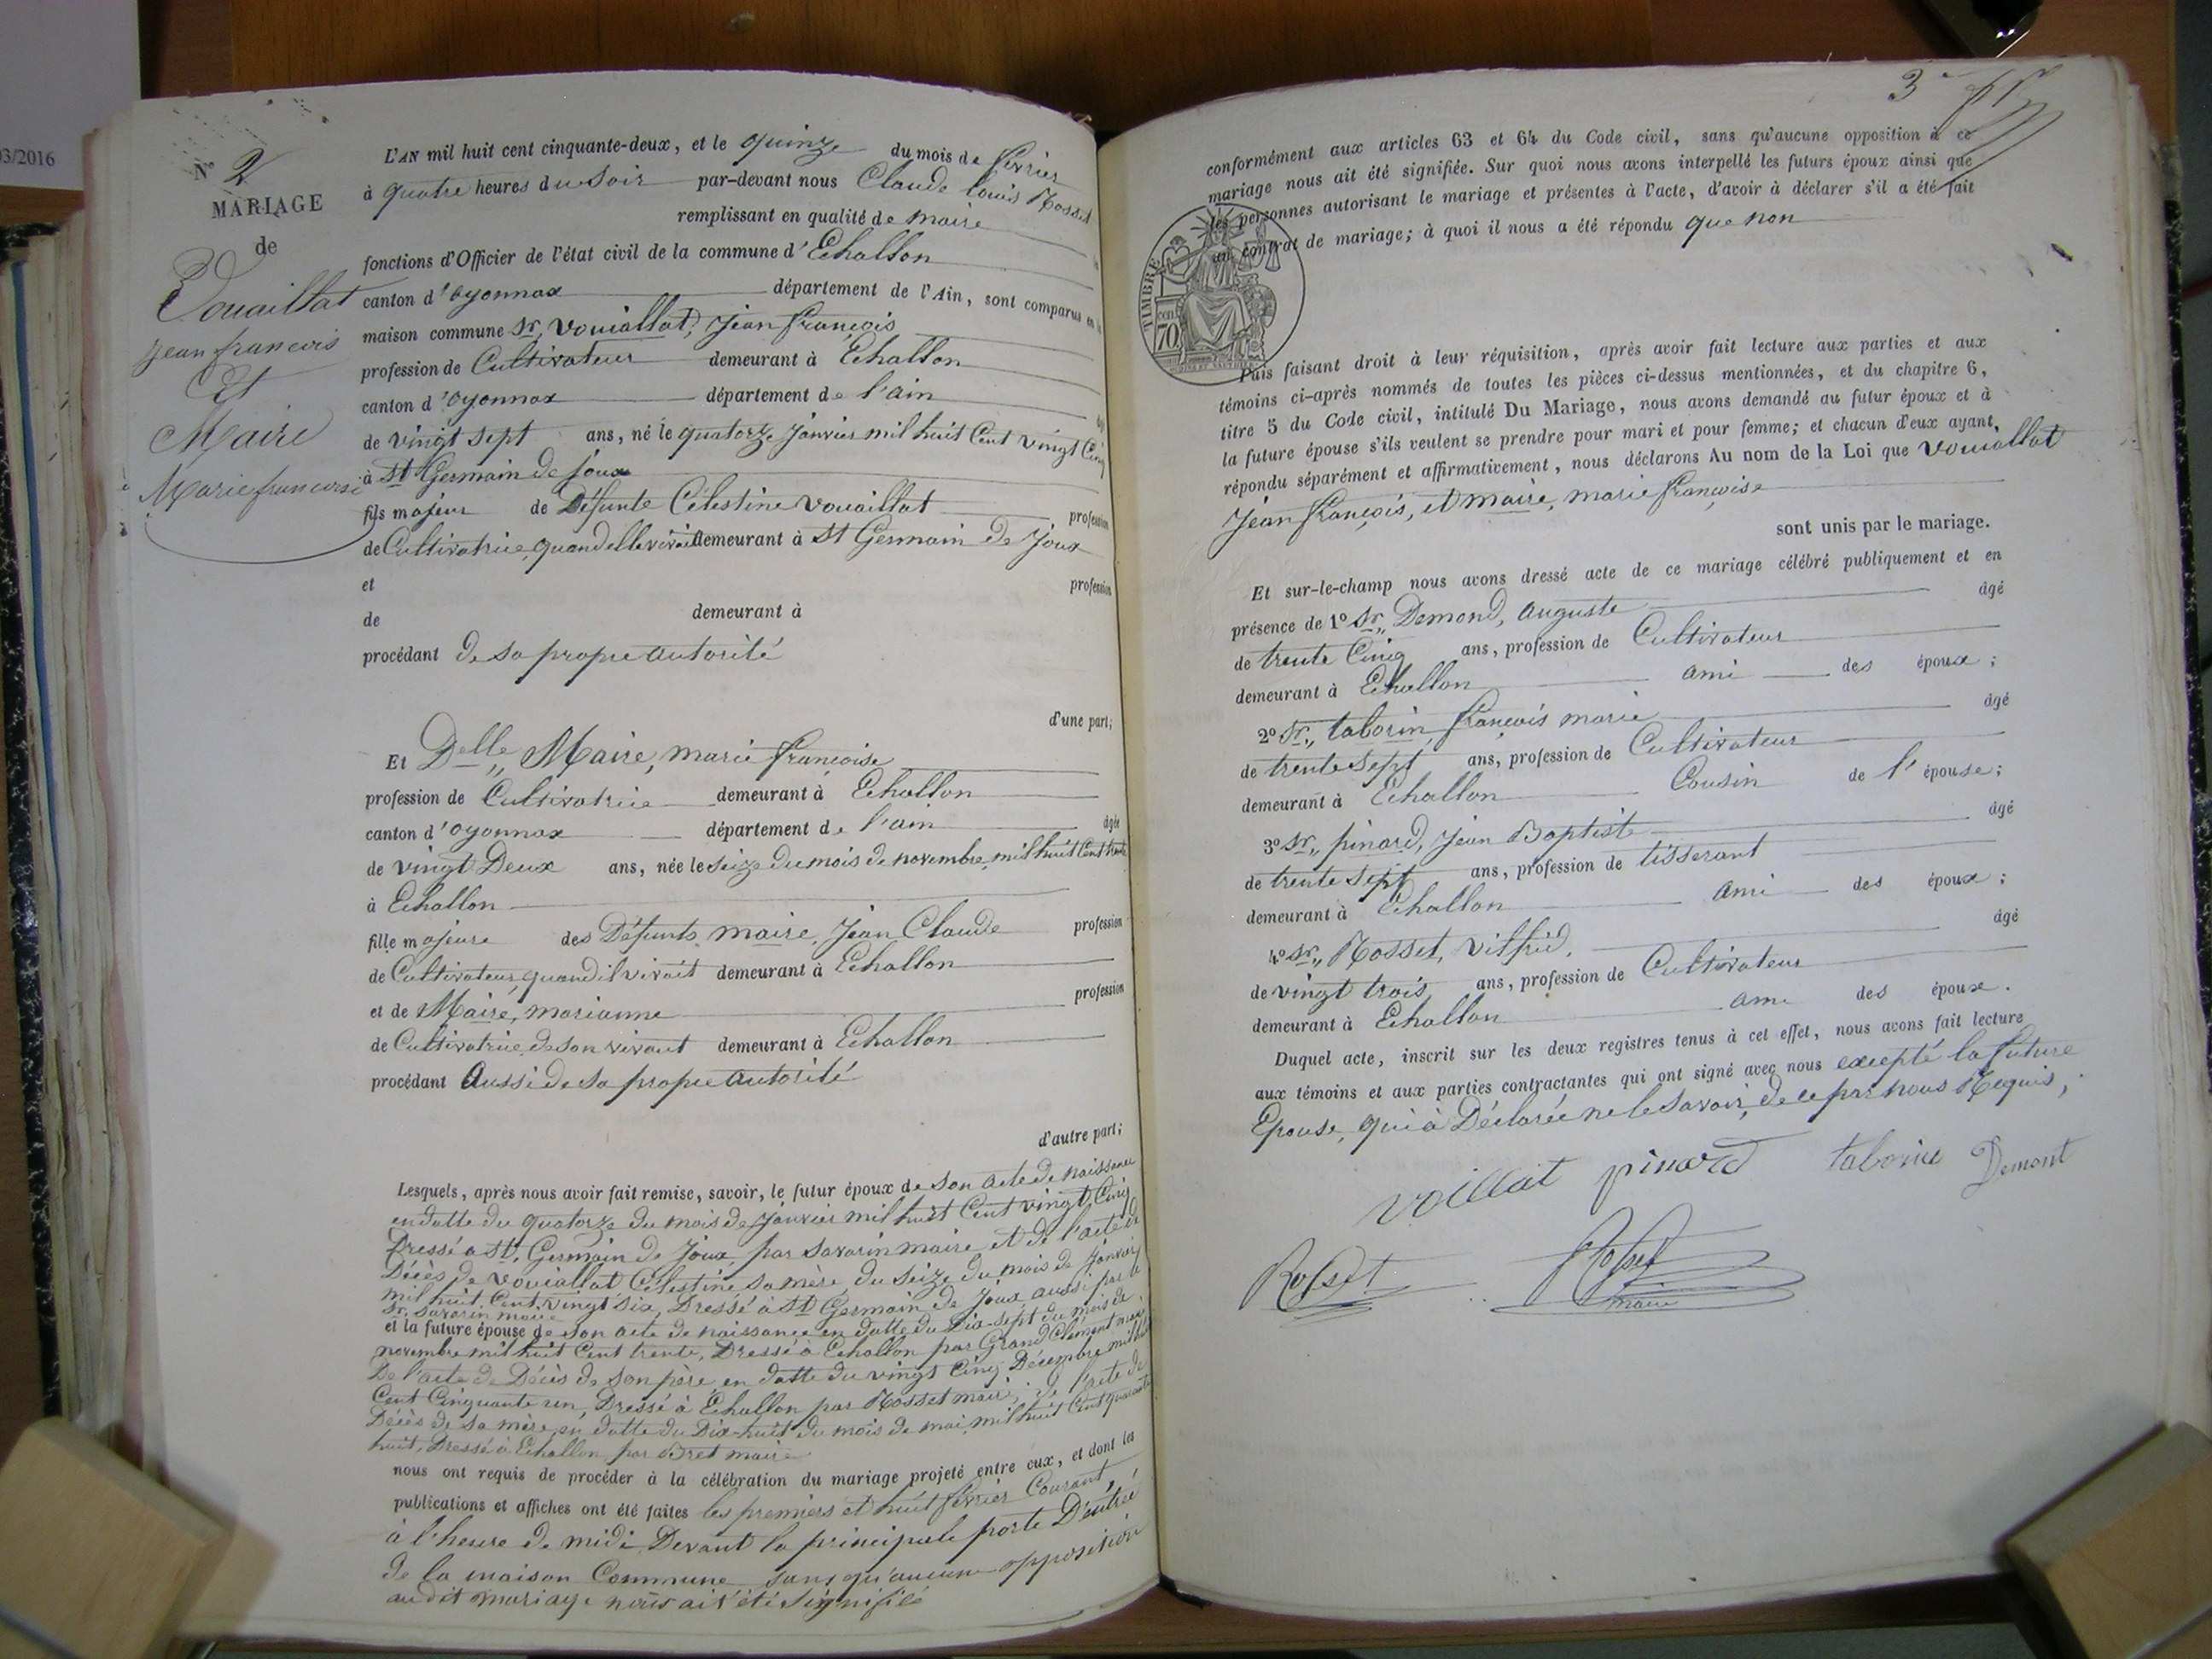 03/2016
N° 2
MARIAGE
de
Vouaillat
jean francois
Et
Maire
Marie francoise
L'AN mil huit cent cinquante-deux, et le quinze du mois de février
à quatre heures du Soir par-devant nous Claude louis Rosset
remplissant en qualité de maire
fonctions d'Officier de l'état civil de la commune d'Echallon
canton d'oyonnax département de l'Ain, sont comparus en
maison commune Sr, Vouiallat, Jean françois
profession de Cultivateur demeurant à Echallon
canton d'oyonnax département de l'ain
de vingt sept ans, né le quatorze Janvier mil huit Cent vingt Cinq
à St Germain de Joux
fils majeur de Défunte Célestine vouaillat profession
de Cultivatrice, quand elle vivait demeurant à St Germain de Joux
et profession
de demeurant à
procédant de sa propre autorité
d'une part;
Et Delle,, Maire, marie françoise
profession de Cultivatrice demeurant à Echallon
canton d'oyonnax département de l'ain âgée
de vingt Deux ans, née le Seize du mois de novembre, mil huit Cent trente
à Echallon
fille majeure des Défunts, maire, Jean Claude profession
de Cultivateur, quand il vivait demeurant à Echallon
et de Maire, marianne profession
de Cultivatrice, de son vivant demeurant à Echallon
procédant aussi de sa propre autorité
d'autre part;
Lesquels, après nous avoir fait remise, savoir, le futur époux de son acte de naissance
en datte du quatorze du mois de Janvier mil huit Cent vingt Cinq
Dressé a St, Germain de Joux, par Savarin maire et de l'acte de
Décès de vouiallat Célestine, sa mère, du Seize du mois de Janvier
mil huit Cent vingt six, Dressé à St Germain de Joux, aussi par le
Sr, Savarin maire
et la future épouse de son acte de naissance en datte du Dix-sept du mois de
novembre mil huit Cent trente, Dressé à Echallon par Grand Clément maire
De l'acte de Décès de son père, en datte du vingt Cinq Décembre mil huit
Cent Cinquante un, Dressé à Echallon par Rosset maire, de l'acte de
Décès de sa mère, en datte du Dix-huit du mois de mai, mil huit Cent quarante
huit, Dressé à Echallon par Bret maire
nous ont requis de procéder à la célébration du mariage projeté entre eux, et dont les
publications et affiches ont été faites les premiers et huit février Courant,
à l'heure de midi, Devant la principale porte D'entrée
de la maison Commune sans qu'aucune opposition
audit mariage nous ait été signifiée
3e
conformément aux articles 63 et 64 du Code civil, sans qu'aucune opposition à ce
mariage nous ait été signifiée. Sur quoi nous avons interpellé les futurs époux ainsi que
les personnes autorisant le mariage et présentes à l'acte, d'avoir à déclarer s'il a été fait
un contrat de mariage; à quoi il nous a été répondu que non
TIMBRE
70
Puis faisant droit à leur réquisition, après avoir fait lecture aux parties et aux
témoins ci-après nommés de toutes les pièces ci-dessus mentionnées, et du chapitre 6,
titre 5 du Code civil, intitulé Du Mariage, nous avons demandé au futur époux et à
la future épouse s'ils veulent se prendre pour mari et pour femme; et chacun d'eux ayant
répondu séparément et affirmativement, nous déclarons Au nom de la Loi que Vouiallat
Jean françois, et maire, marie françoise
sont unis par le mariage.
Et sur-le-champ nous avons dressé acte de ce mariage célébré publiquement et en
présence de 1° Sr,, Demond, auguste âgé
de trente Cinq ans, profession de Cultivateur
demeurant à Echallon ami des époux;
2° Sr,, taborin, françois marie âgé
de trente sept ans, profession de Cultivateur
demeurant à Echallon Cousin de l'épouse;
3° Sr,, pinard, Jean Baptiste âgé
de trente sept ans, profession de tisserant
demeurant à Echallon ami des époux;
4° Sr,, Rosset, vilfrid, âgé
de vingt trois ans, profession de Cultivateur
demeurant à Echallon ami des époux.
Duquel acte, inscrit sur les deux registres tenus à cet effet, nous avons fait lecture
aux témoins et aux parties contractantes qui ont signé avec nous excepté la future
Epouse, qui à Déclarée ne le savoir, de ce par nous Requis,
voillat pinard taborin Demont
Rosset Rosset
maire